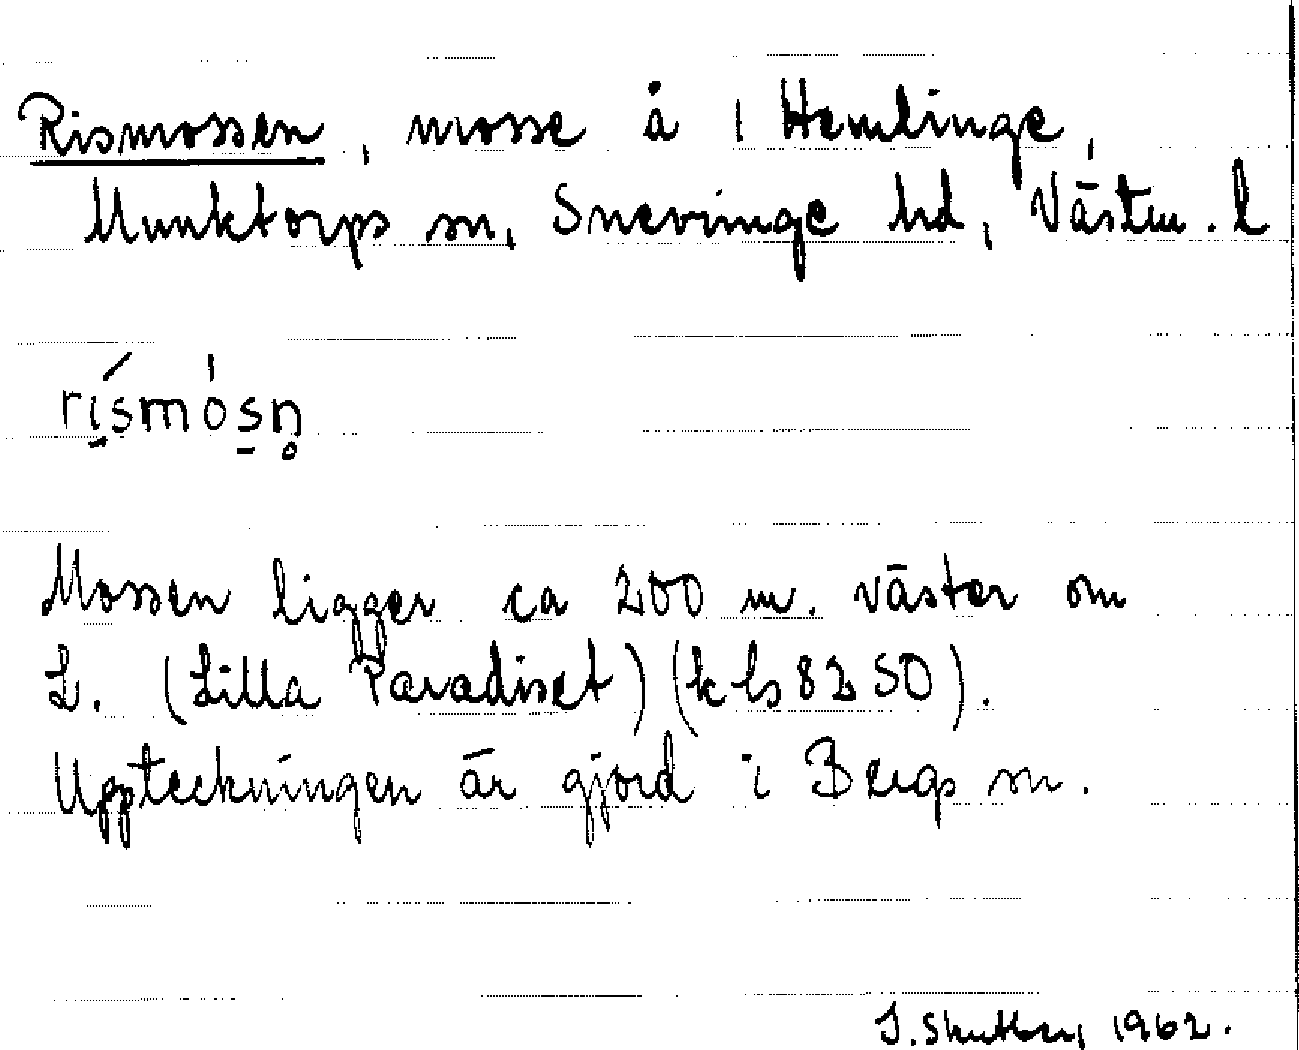 Rismossen, mosse å 1 Hemlinge,
Munktorps sn, Snevringe hd, Västm. l
rismósn̥
Mossen ligger ca 200 m. väster om
L. (Lilla Paradiset) (k bs 82 50).
Uppteckningen är gjord i Bergs sn.
1962.